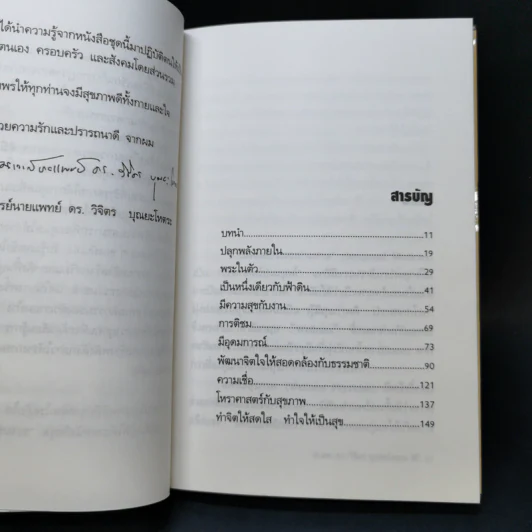 ได้นำความรู้จากหนังสือชุดนี้มาปฏิบัติ
ตนเอง ครอบครัว และสังคมโดยส่วนรวม
พรให้ทุกท่านจงมีสุขภาพดีทั้งกายและใจ
วยความรักและปรารถนาดี จากผม
รย์นายแพทย์ ดร. วิจิตร บุณยะโหตระ
สารบัญ
บทนำ 11
ปลุกพลังภายใน 19
พระในตัว 29
เป็นหนึ่งเดียวกับฟ้าดิน 41
มีความสุขกับงาน 54
การติชม 69
มีอุดมการณ์ 73
พัฒนาจิตใจให้สอดคล้องกับธรรมชาติ 90
ความเชื่อ 121
โหราศาสตร์กับสุขภาพ 137
ทำจิตให้สดใส ทำใจให้เป็นสุข 149